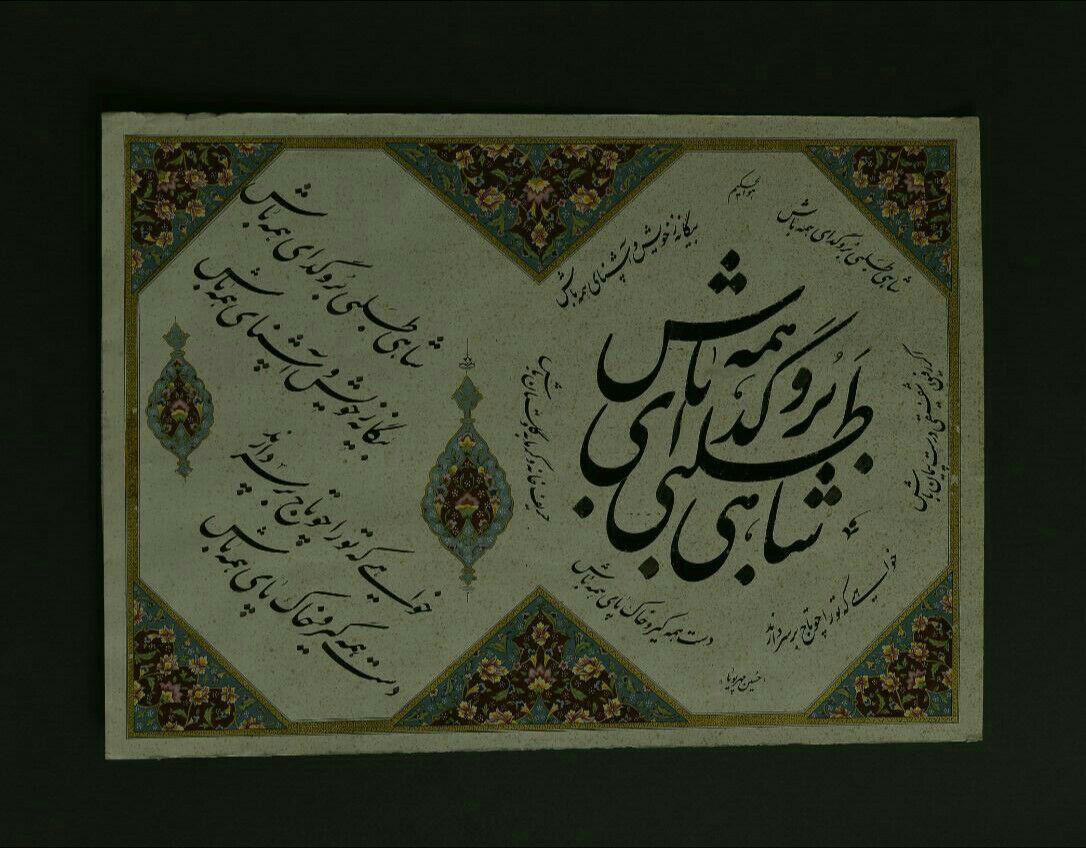 هو الحکیم
شاهی طلبی برو گدای همه باش
بیگانه ز خویش و آشنای همه باش
شاهی طلبی بَرو گدای همه باش
خواهی که تو را چو تاج بر سر دارند
دست همه گیر و خاک پای همه باش
حسین مهرپویا
شاهی طلبی برو گدای همه باش
بیگانه ز خویش و آشنای همه باش
خواهی که تو را چو تاج بر سر دارند
دست همه گیر و خاک پای همه باش